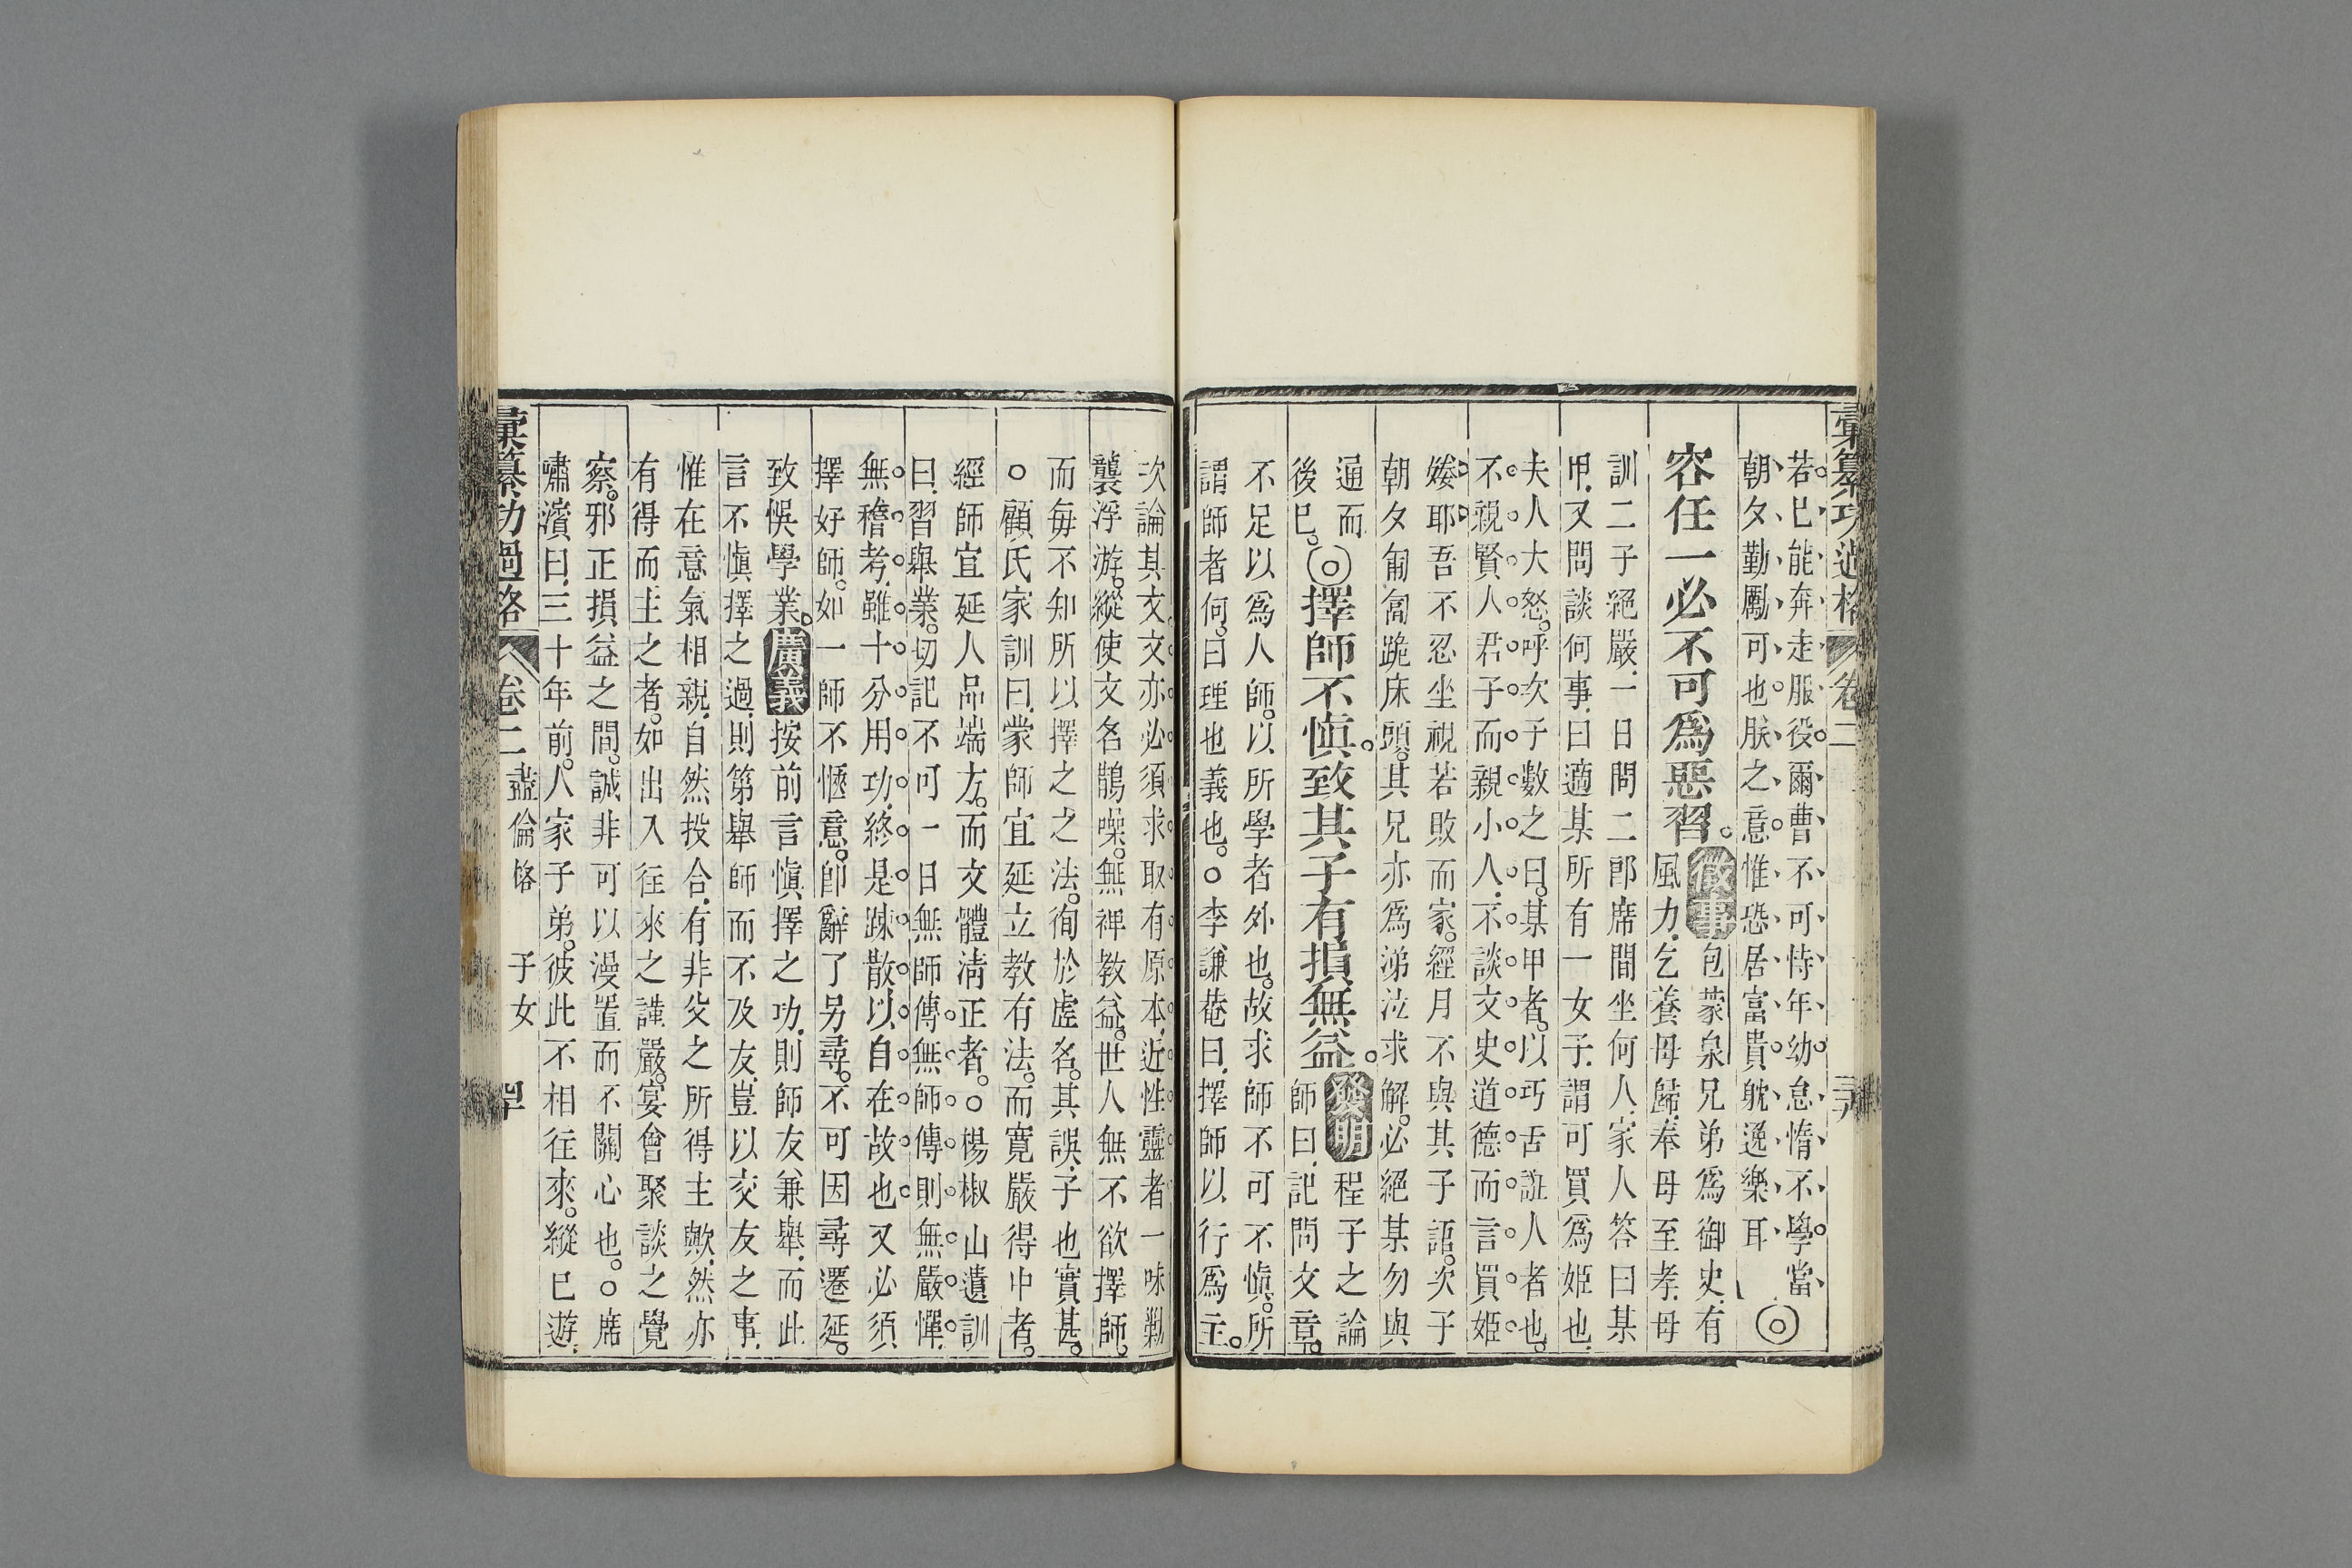 彙纂功過格 卷二 三九
若已能奔走服役。爾曹不可恃年幼怠惰不學。當
朝夕勤勵可也。朕之意惟恐居富貴躭逸樂耳 ◎
容任一必不可爲惡習。
徵事 包蒙泉兄弟爲御史有
風力乞養母歸奉母至孝母
訓二子絕嚴一日問二郎席間坐何人家人答曰某
甲又問談何事曰適某所有一女子謂可買爲姬也
夫人大怒。呼次子數之曰。某甲者。以巧舌誑人者也。
不親賢人君子而親小人不談文史道德而言買姬
婑耶吾不忍坐視若敗而家。經月不與其子語。次子
朝夕匍匐跪床頭。其兄亦爲涕泣求解。必絕某勿與
通而
後已。
◎擇師不愼。致其子有損無益。
發明 程子之論
師曰記問文章。
不足以爲人師。以所學者外也。故求師不可不愼。所
謂師者何。曰理也義也。○李謙菴曰擇師以行爲主。
次論其文文亦必須求取有原本近性靈者一味勦
襲浮游。縱使文名鵲噪。無裨教益。世人無不欲擇師。
而每不知所以擇之之法。徇於虛名。其誤子也實甚。
○顧氏家訓曰蒙師宜延立教有法。而寬嚴得中者。
經師宜延人品端方。而文體淸正者。○楊椒山遺訓
曰習舉業。切記不可一日無師傅無師傅則無嚴憚
無稽考雖十分用功終是疎散以自在故也又必須
擇好師。如一師不愜意。卽辭了另尋。不可因尋遷延。
致悞學業。廣義 按前言愼擇之功則師友兼舉而此
言不愼擇之過則第舉師而不及友豈以交友之事
惟在意氣相親自然投合有非父之所得主歟然亦
有得而主之者。如出入往來之謹嚴。宴會聚談之覺
察。邪正損益之間。誠非可以漫置而不關心也。○席
嘯濱曰三十年前。人家子弟。彼此不相往來。縱已遊
彙纂功過格 卷二 盡倫格 子女 四十